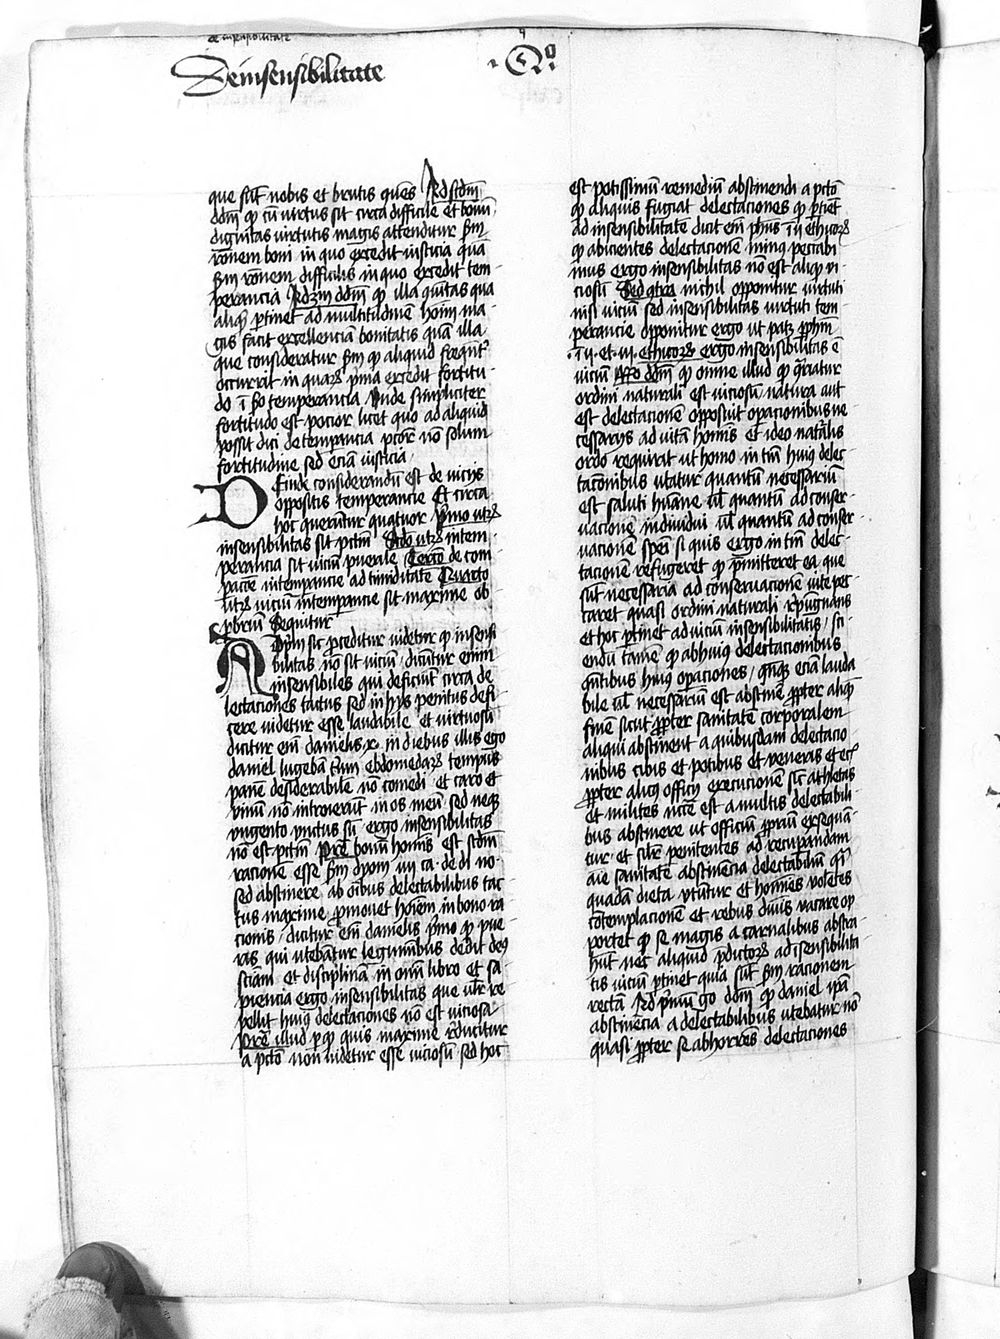 de insensibilitate
De insensibilitate
que sut nobis et brutis ques Ad scdm
ddm qp cu virtus sit circa difficile et bonu
dignitas virtutis magis attenditur scdm
ronem boni in quo excedit iusticia qua
scdm ronem difficilis in quo excedit tem
perancia Ad 3m ddm qp illa quitas qua
aliqd ptinet ad multitudine hoim ma
gis facit excellencia bonitatis qua illa
que consideratur scdm qp aliquid
occurrit in quarum pma excedit fortitu
do i scda temperancia Unde simpliciter
fortitudo est pocior licet quo ad aliquid
possit dici de tempancia pcor no solum
fortitudine sed ecia iusticia
Deinde considerandu est de vicijs
oppositis temperancie Et circa
hoc queruntur quatuor Primo utrum
insensibilitas sit pctm Scdo utrum intem
perancia sit viciu puerile Tercio de com
pacoe intempancie ad timiditate Quarto
utrum viciu intemperancie sit maxime ob
pbriu Sequitur
Ad pm sic proceditur videtur qp insensi
bilitas no sit viciu dicuntur enim
insensibiles qui deficiunt circa de
lectaciones tactus sed in hys penitus defi
cere videtur esse laudabile et virtuosu
dicitur em danielis x in diebus illis ego
daniel lugeba trium ebdomedarum tempus
pane desiderabile no comedi et caro et
vinu no introierut in os meu sed neq
ungento unctus su ergo insensibilitas
no est pctm Pre bonu hominis est scdm
racione esse scdm dyom iiii ca de di no
sed abstinere ab oibus delectabilibus tac
tus maxime pmovet hoiem in bono ra
cionis dicitur em danielis pmo qp pue
ris qui utebantur leguminibus dedit deus
sciam et disciplina in omi libro et sa
piencia ergo insensibilitas que ulr re
pellit huius delectaciones no est viciosa
Pre illud per qp quis maxime reducitur
a pcto non videtur esse viciosu sed hoc
est potissimu remediu abstinendi a pcto
qp aliquis fugiat delectaciones qp ptinet
ad insensibilitate dicit em phus i ii ethicorum
qp abicientes delectacione minus peccabi
mus ergo insensibilitas no est aliqd vi
ciosu Sed contra nichil opponitur virtuti
nisi viciu sed insensibilitas virtuti tem
perancie opponitur ergo ut patz p phm
i ii et iii ethicorum ergo insensibilitas e
viciu Rno ddm qp omne illud qp contrariatur
ordini naturali est viciosu natura aut
est delectacione opposuit opacionibus ne
cessarijs ad vita hominis et ideo natalis
ordo requirit ut homo in tm huius delec
tacionibus utatur quantu necessariu
est saluti humane vel quantu ad conser
vacione individui vel quantu ad conser
vacione spei si quis ergo in tm delec
tacione refugeret qp pmitteret ea que
sut necessaria ad conservacione nature pec
caret quasi ordini naturali repugnans
et hoc ptinet ad viciu insensibilitatis sci
endu tamen qp ab huius delectacionibus
quentibus huius opaciones quq ecia lauda
bile vel necessariu est abstine ppter aliqp
fine sicut ppter sanitate corporalem
aliqui abstinent a quibusdam delectacio
nibus cibis et potibus et venereis et ecia
ppter alicuius officij execucione sicut athletas
et milites necesse est a multis delectabili
bus abstinere ut officiu ppriu exsequan
tur et silr penitentes ad recuperandam
aie sanitate abstinencia delectabiliu quasi
quadam dieta utuntur et homines volentes
contemplacione et rebus divinis vacare op
portet qp se magis a carnalibus abstra
hant nec aliquid predictorum ad isensibilita
tis viciu ptinet quia sut scdm racionem
recta Ad primu go ddm qp daniel ipa
abstinencia a delectabilibus utebatur no
quasi ppter se abhorrens delectaciones